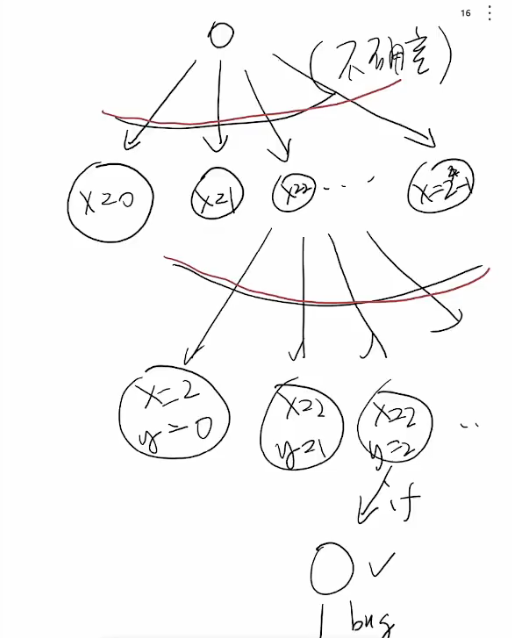 16
(不确定)
x=0
x=1
x=2
...
x=2
y=0
x=2
y=1
x=2
y=2
..
if
✓
bug